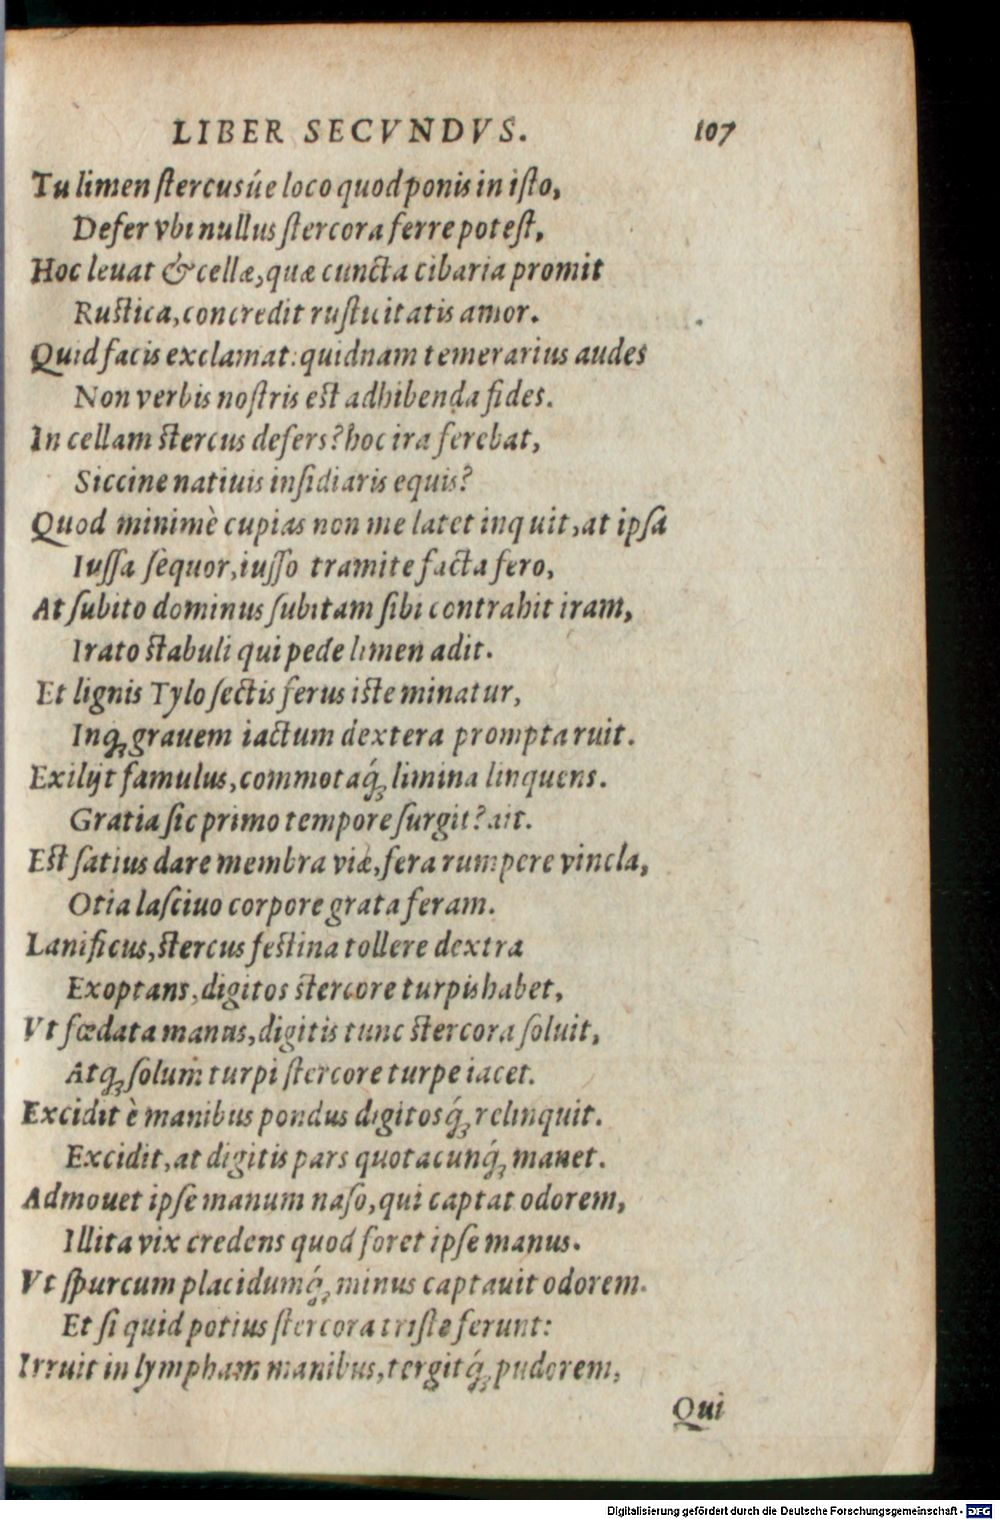 LIBER SECVNDVS. 107
Tu limen ſtercusúe loco quod ponis in iſto,
Defer vbi nullus ſtercora ferre poteſt,
Hoc leuat & cellæ, quæ cuncta cibaria promit
Ruſtica, concredit ruſticitatis amor.
Quid facis exclamat: quidnam temerarius audes
Non verbis noſtris eſt adhibenda fides.
In cellam ſtercus defers? hoc ira ferebat,
Siccine natiuis inſidiaris equis?
Quod minimè cupias non me latet inquit, at ipſa
Iuſſa ſequor, iuſſo tramite facta fero,
At ſubito dominus ſubitam ſibi contrahit iram,
Irato ſtabuli qui pede limen adit.
Et lignis Tylo ſectis ferus iſte minatur,
Inq́ grauem iactum dextera prompta ruit.
Exilijt famulus, commotaq́ limina linquens.
Gratia ſic primo tempore ſurgit? ait.
Eſt ſatius dare membra viæ, fera rumpere vincla,
Otia laſciuo corpore grata feram.
Lanificus, ſtercus feſtina tollere dextra
Exoptans, digitos ſtercore turpis habet,
Vt fœdata manus, digitis tunc ſtercora ſoluit,
Atq́ ſolum turpi ſtercore turpe iacet.
Excidit è manibus pondus digitosq́ relinquit.
Excidit, at digitis pars quotacunq́ manet.
Admouet ipſe manum naſo, qui captat odorem,
Illita vix credens quod foret ipſe manus.
Vt ſpurcum placidumq́ minus captauit odorem.
Et ſi quid potius ſtercora triſte ferunt:
Irruit in lympham manibus, tergitq́ pudorem,
Qui
Digitalisierung gefördert durch die Deutsche Forschungsgemeinschaft - DFG